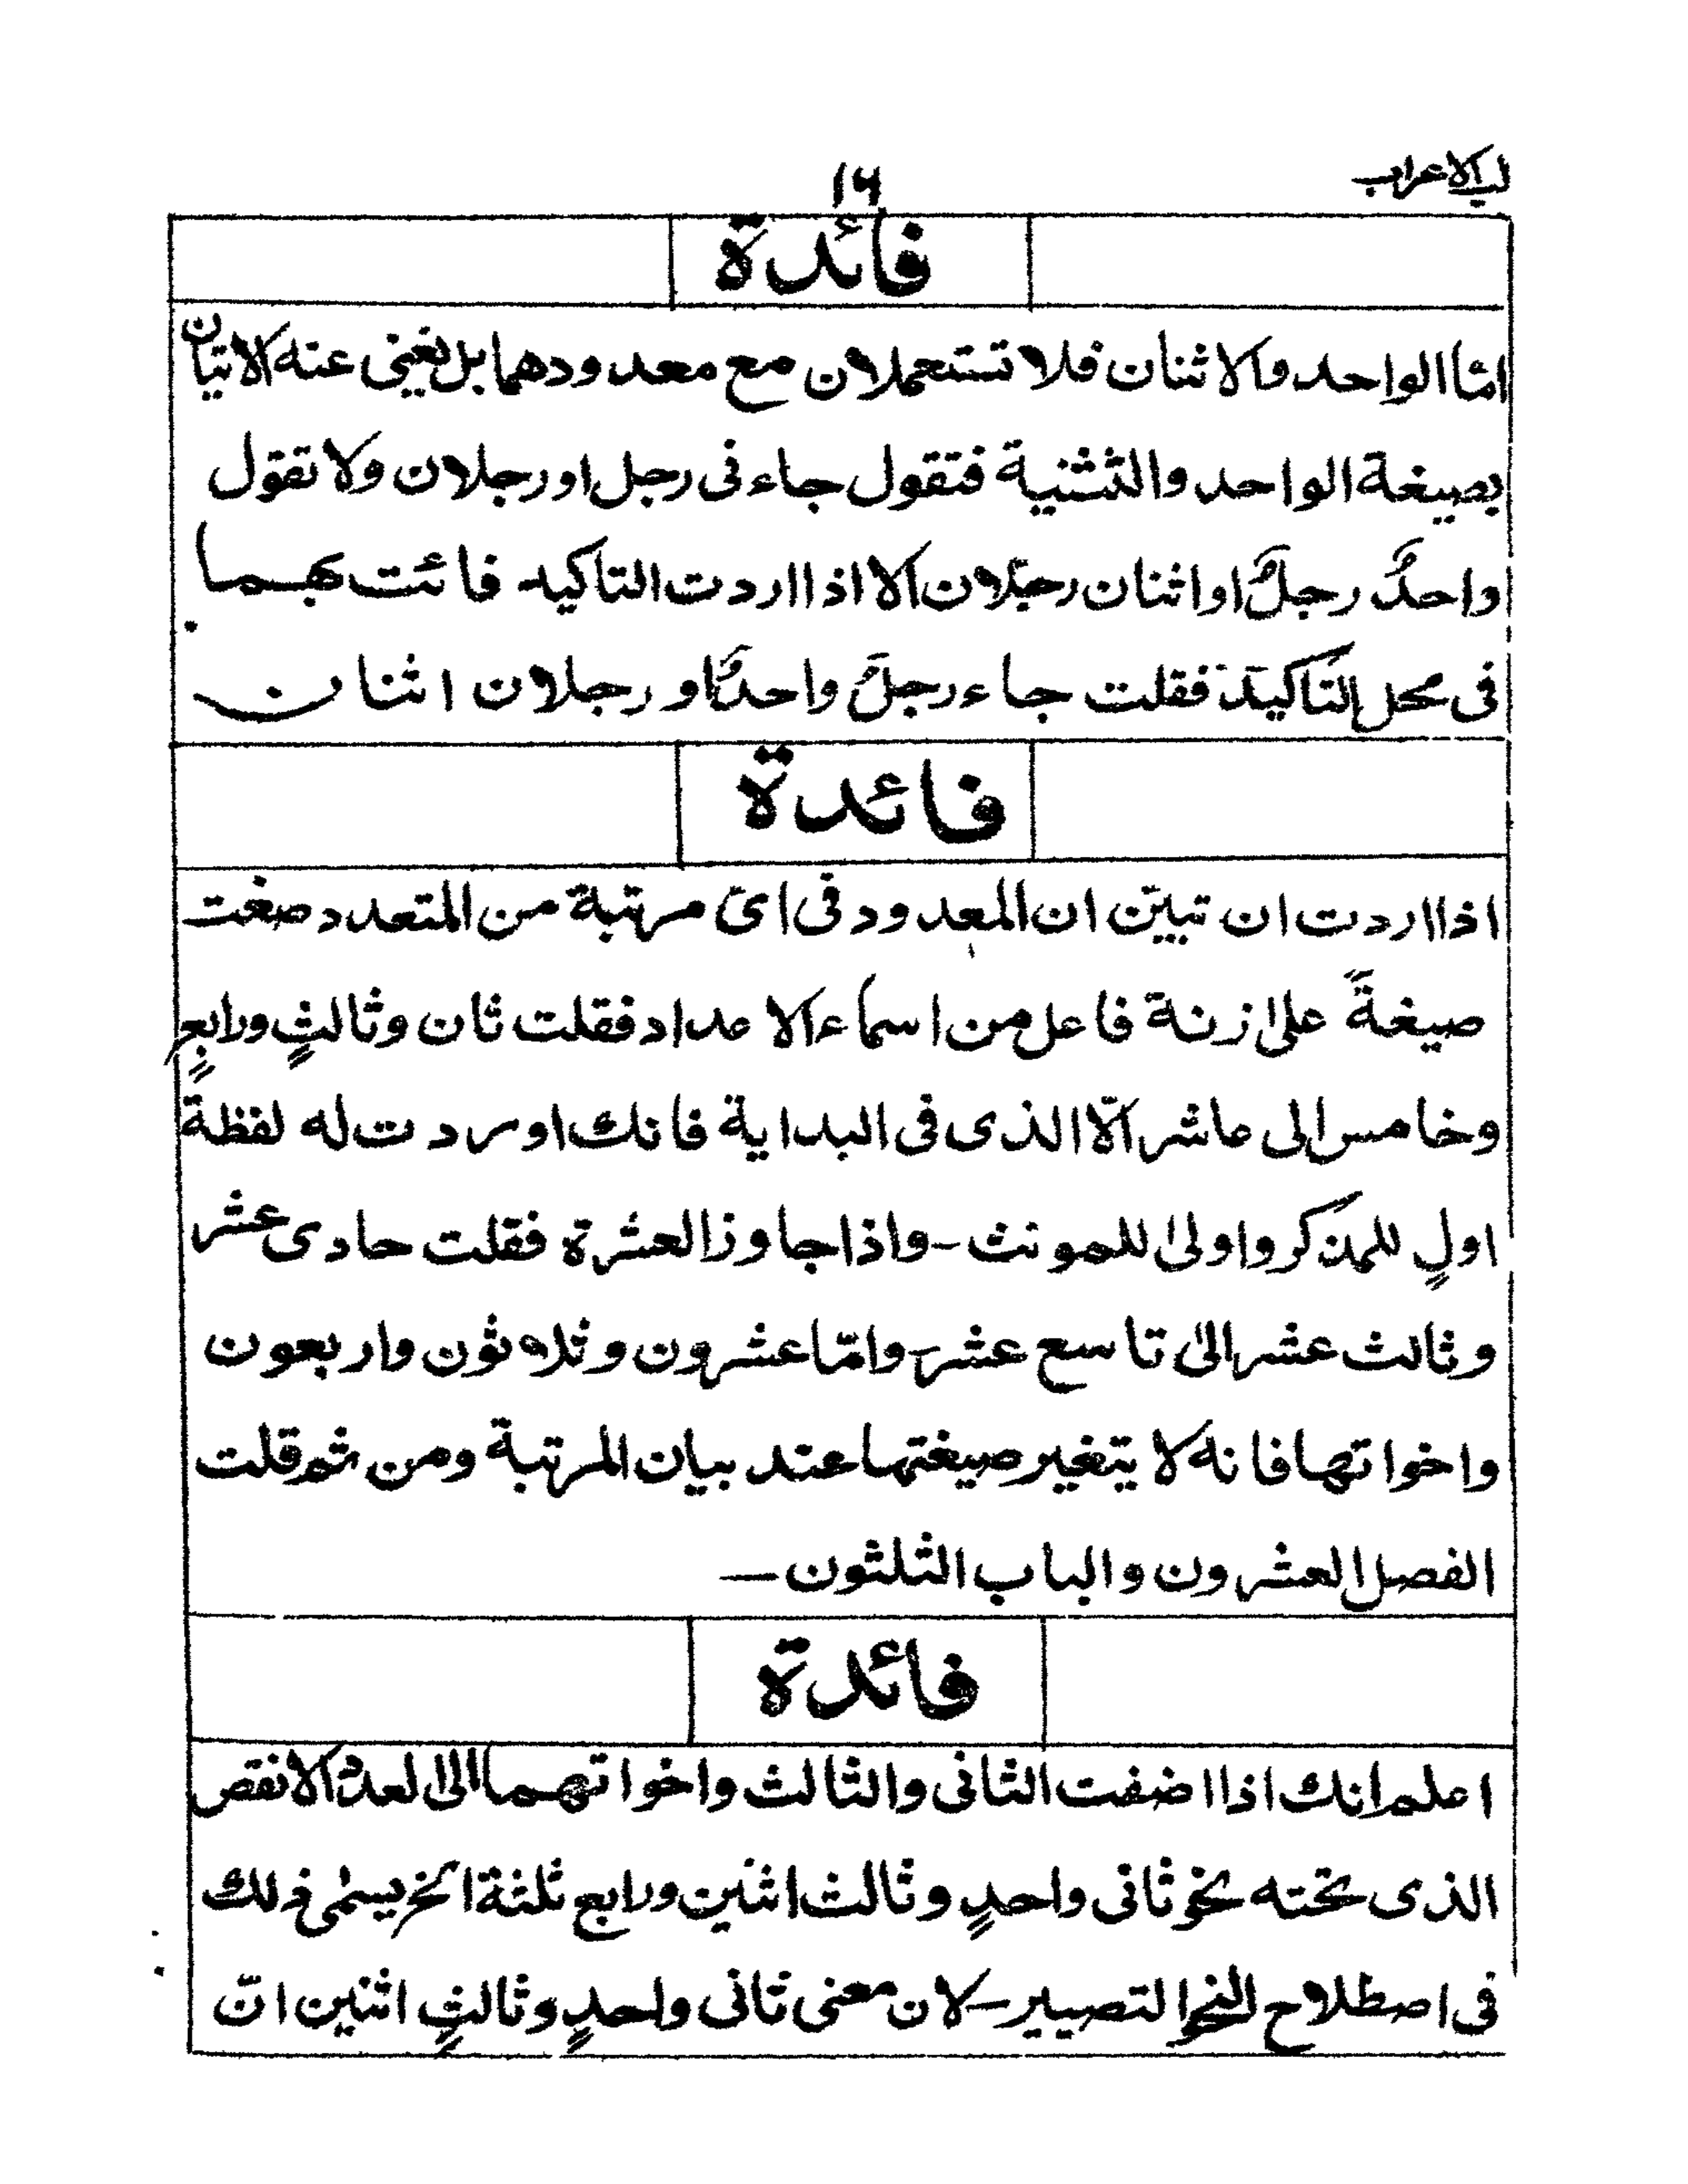 لب الاعراب
١٦
فائدة
امّا الواحد والاثنان فلا تستعملان مع معدودهما بل يغنى عنه الاتيان
بصيغة الواحد والتثنية فتقول جاءنى رجل او رجلان ولا تقول
واحدٌ رجلٌ او اثنان رجلان الا اذا اردت التاكيد فائت بهما
فى محل التاكيد فقلت جاء رجلٌ واحدٌ او رجلان اثنان
فائدة
اذا اردت ان تبيّن ان المعدود فى اىّ مرتبة من المتعدد صغت
صيغةً على زنة فاعل من اسماء الاعداد فقلت ثان وثالثٍ ورابعٍ
وخامس الى عاشر الّا الذى فى البداية فانك اوردت له لفظة
اولٍ للمذكر واولىٰ للمونث - واذا جاوز العشرة فقلت حادى عشر
وثالث عشر الىٰ تاسع عشر - وامّا عشرون وثلاثون واربعون
واخواتها فانه لا يتغير صيغتها عند بيان المرتبة ومن ثم قلت
الفصل العشرون والباب الثلثون —
فائدة
اعلم انك اذا اضفت الثانى والثالث واخواتهما الى العدد الانقص
الذى تحته نحو ثانى واحدٍ وثالث اثنين ورابع ثلثة الخ يسمٰى ذلك
فى اصطلاح النحو التصيير - لان معنى ثانى واحدٍ وثالثٍ اثنين انّ